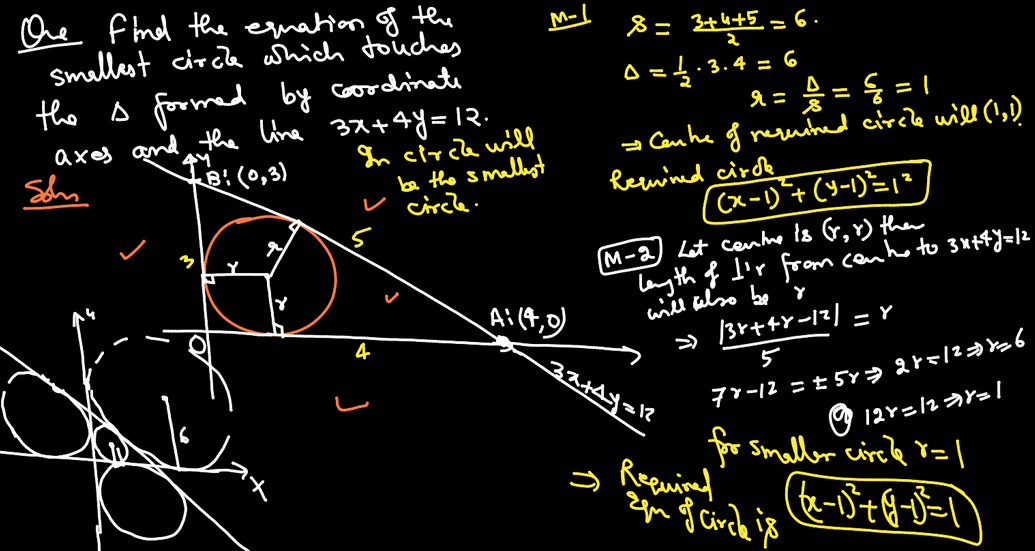 Que Find the equation of the
smallest circle which touches
the Δ formed by coordinate
axes and the line 3x+4y=12.
Soln
In circle will
be the smallest
circle.
Y
B:(0,3)
3
r
r
r
5
A:(4,0)
O
4
3x+4y=12
y
6
X
M-1
s = (3+4+5)/2 = 6.
Δ = 1/2 · 3 · 4 = 6
r = Δ/s = 6/6 = 1
⇒ Centre of required circle will (1,1)
Required circle
(x-1)²+(y-1)²=1²
M-2 Let centre is (r,r) then
length of ⊥'r from centre to 3x+4y=12
will also be r
⇒ |3r+4r-12|/5 = r
7r-12 = ±5r ⇒ 2r=12 ⇒ r=6
12r=12 ⇒ r=1
for smaller circle r=1
⇒ Required
Eqn of circle is (x-1)²+(y-1)²=1